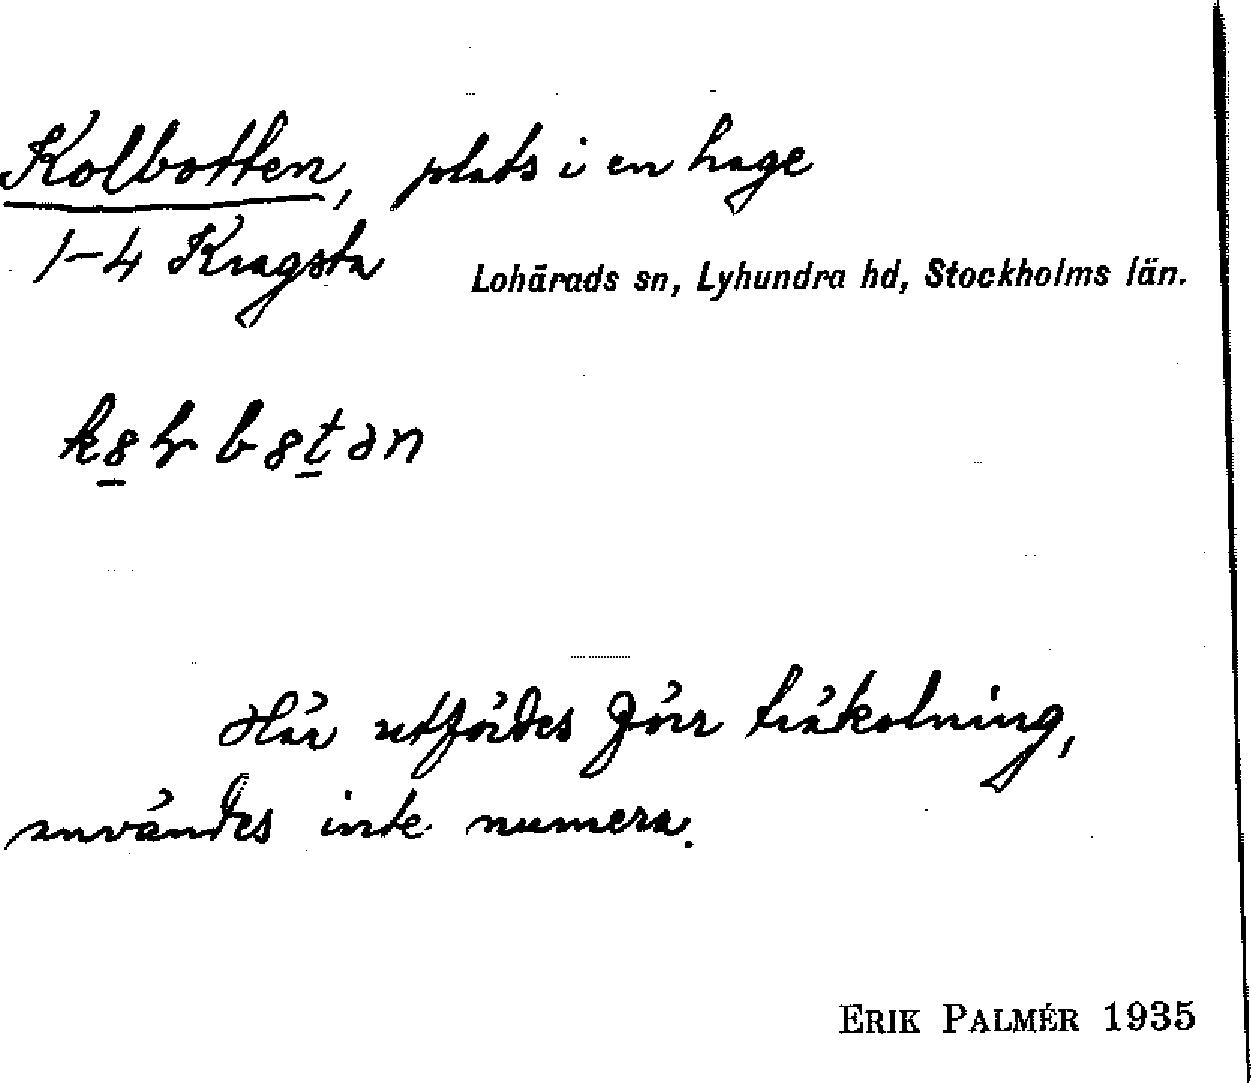 Kolbotten, plats i en hage
1-4 Kragsta Lohärads sn, Lyhundra hd, Stockholms län.
Här utfördes förr träkolning,
användes inte numera.
ERIK PALMÉR 1935